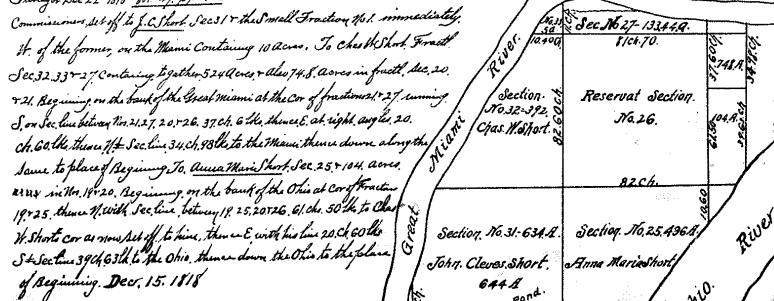 Commissioners, set off to J.C. Short. Sec 31 & the Small Fraction No 1. immediately,
W. of the former, on the Miami Containg 10 Acres. To Chas W. Short. Fractl
Sec. 32. 33 & 27. Containg together 524 Acres, & also 74.8. Acres in fractl. sec. 20.
& 21. Beginning on the bank of the Great Miami at the Cor of fractions 21. & 27. running
S. on Sec. line betwen Nos. 21. 27, 20. & 26. 37 ch. 6 lks, thence E. at right angles, 20.
ch. 60 lks, thence N Sec. line 34. ch. 98 lks to the Miami, thence down along the
same to place of Beginning To. Anna Maria Short. Sec. 25, & 104. acres.
in Nos. 19 & 20. Beginning on the bank of the Ohio at Cor of Fraction
19. & 25. thence N. with Sec. line, betwen 19. 25, 20 & 26. 61. chs. 50 lks to Chas
W. Shorts cor as now set off to him, thence E. with his line 20. Ch. 60 lks
S Sec line 39 ch 63 lk to the Ohio, thence down the Ohio to the place
of Beginning. Decr. 15. 1818
Great Miami River
10.40 a
Sec. No 27 - 133.44 a.
81 ch. 70.
Section.
No. 32 = 392.
Chas. W. Short.
82.60 ch
Reservat Section.
No. 26.
82 ch.
37.60 ch
74.8 A.
34.98 ch.
61.50
104. A.
39.63 ch
10.60
Section. No. 31 - 634 A.
John. Cleves. Short.
644 A
Pond.
Section. No. 25, 496 A.
Anna Maria Short
Ohio. River